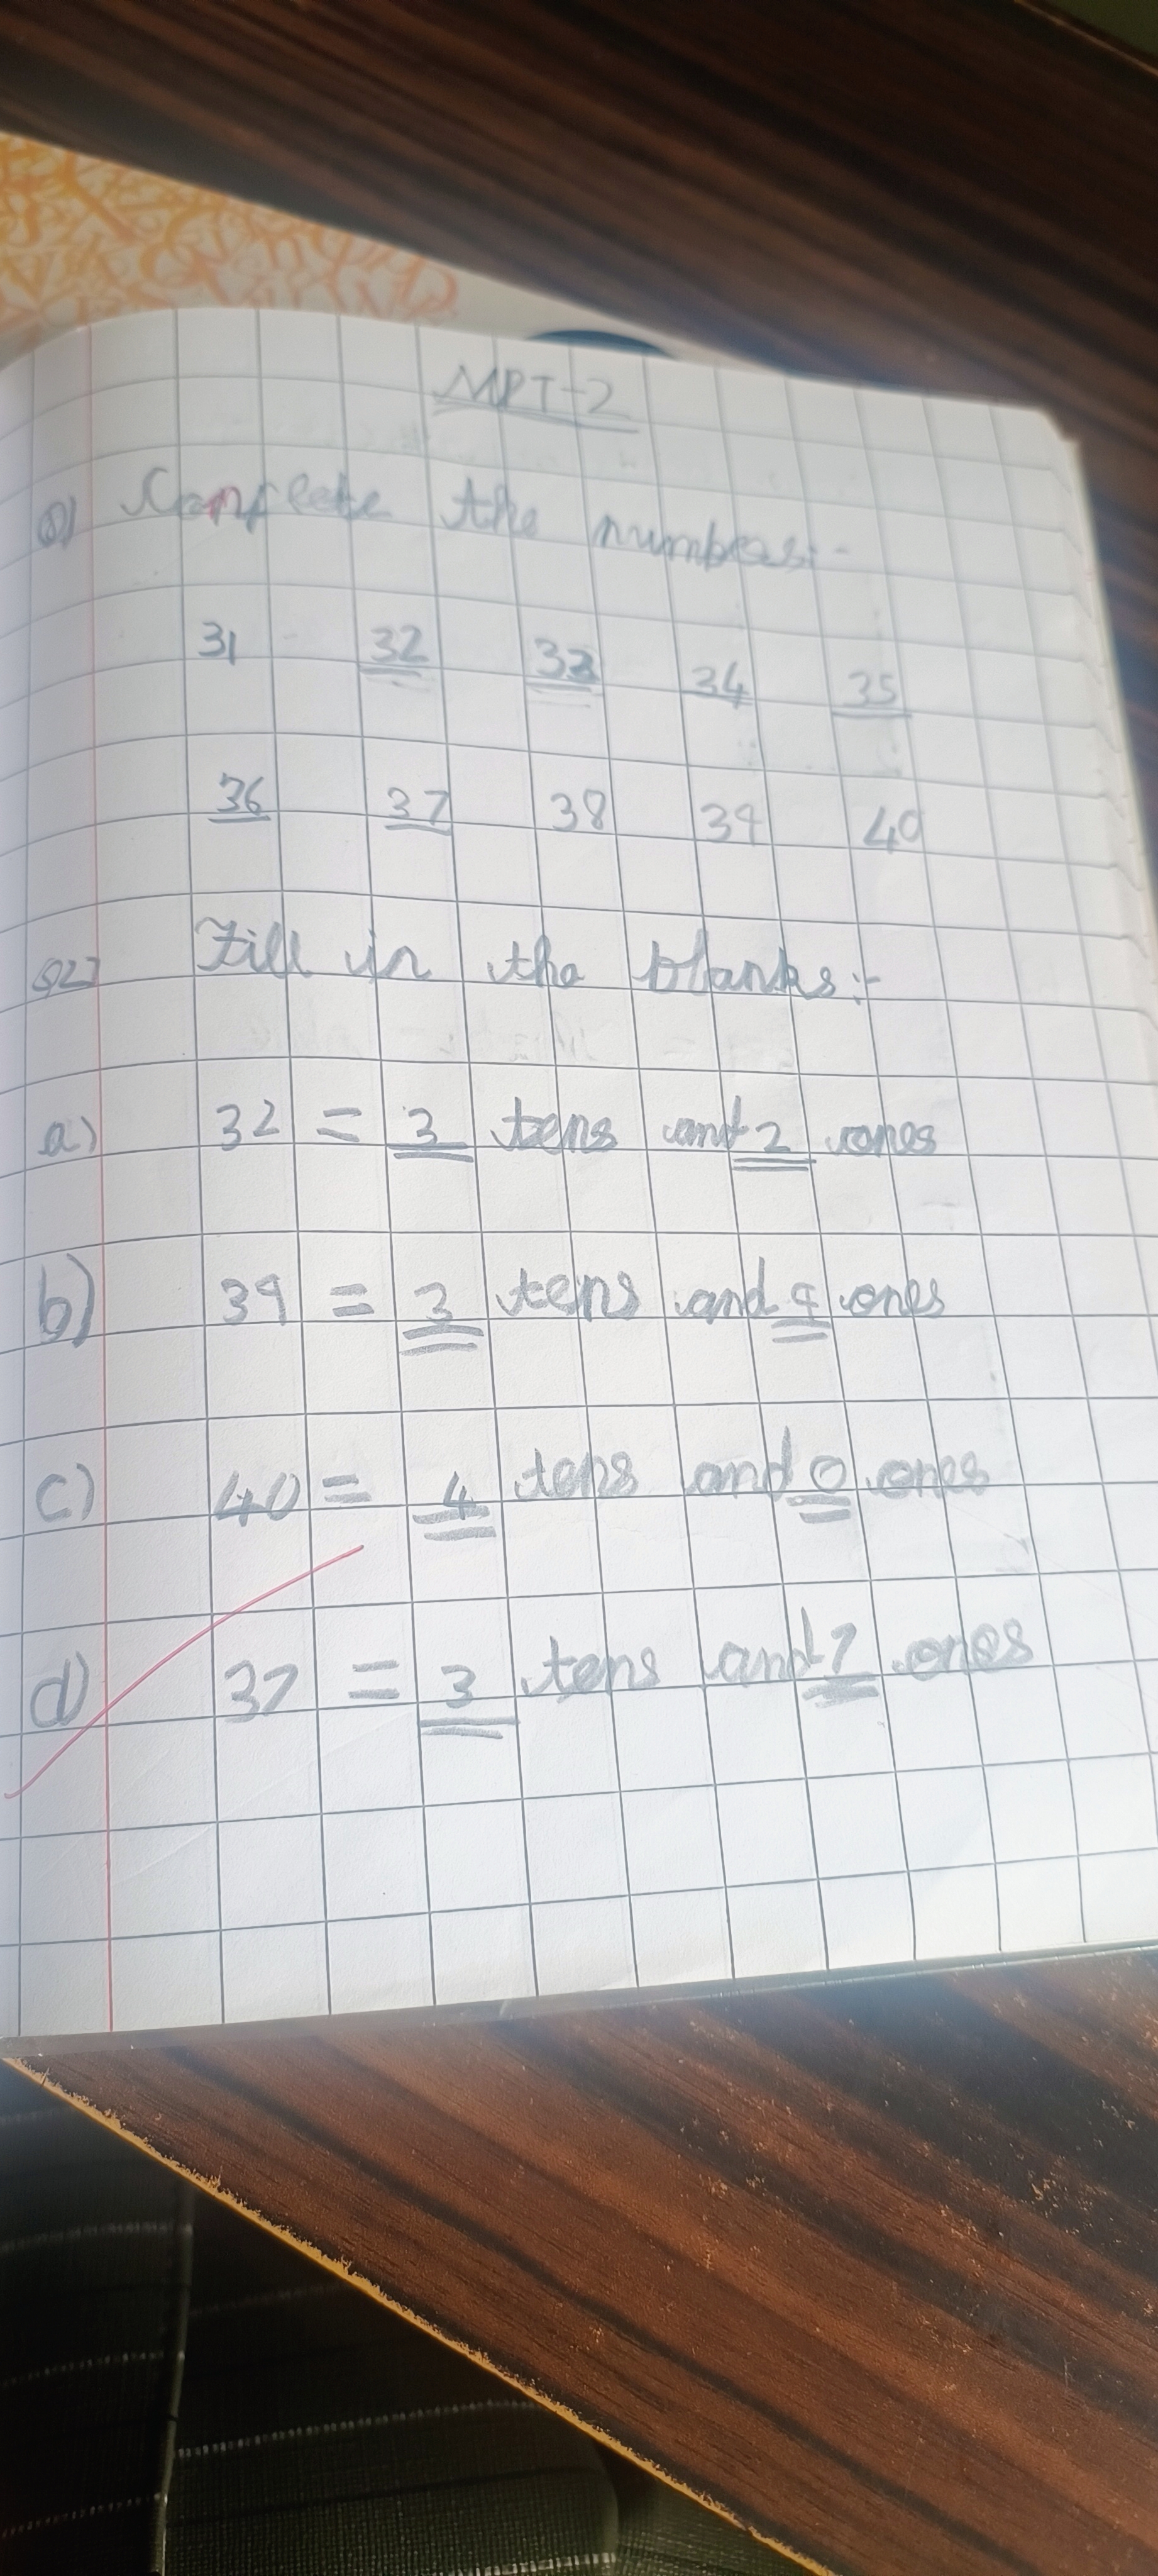 MPT-2
Q) Complete the numbers:-
31 32 33 34 35
36 37 38 39 40
Q2) Fill in the blanks:-
a) 32 = 3 tens and 2 ones
b) 39 = 3 tens and 9 ones
c) 40 = 4 tens and 0 ones
d) 37 = 3 tens and 7 ones